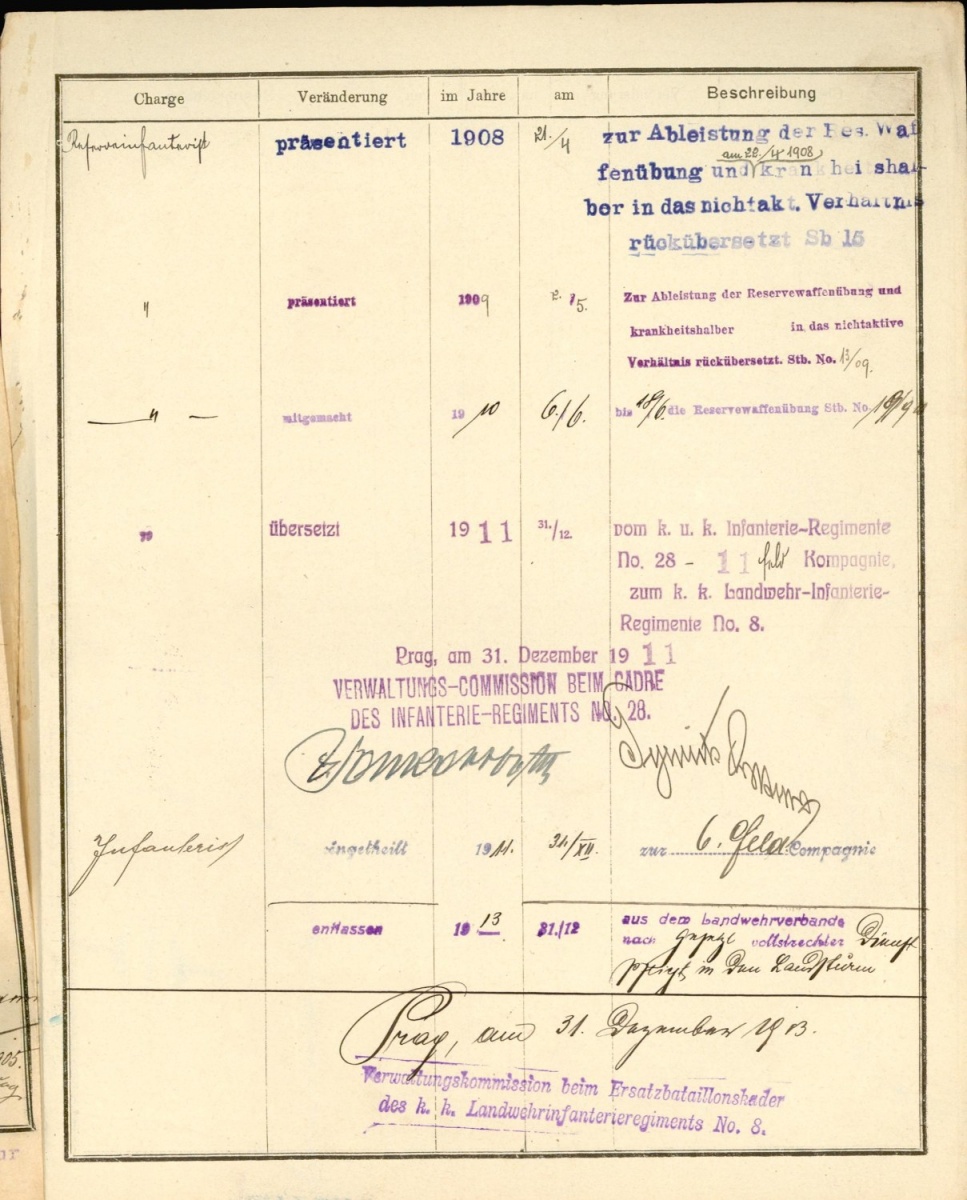 Charge Veränderung im Jahre am Beschreibung
Reserveinfanterist präsentiert 1908 21./4 zur Ableistung der Res. Waf
am 22./4 1908
fenübung und krankheitshal-
ber in das nichtakt. Verhältnis
rückübersetzt Sb 15
" präsentiert 1909 2./5. Zur Ableistung der Reservewaffenübung und
krankheitshalber in das nichtaktive
Verhältnis rückübersetzt. Stb. No. 13/09.
— " — mitgemacht 1910 6./6. bis 18/6. die Reservewaffenübung Stb. No.
" übersetzt 1911 31./12. vom k. u. k. Infanterie-Regimente
No. 28 - 11 feld Kompagnie,
zum k. k. Landwehr-Infanterie-
Regimente No. 8.
Prag, am 31. Dezember 1911
VERWALTUNGS-COMMISSION BEIM CADRE
DES INFANTERIE-REGIMENTS NO. 28.
Infanterist eingetheilt 1911. 31/XII. zur 6. Feld Compagnie
entlassen 1913 31./12 aus dem Landwehrverbande
nach gesetzl vollstreckter Dienst
pflicht in den Landsturm
Prag, am 31. Dezember 1913.
Verwaltungskommission beim Ersatzbataillonskader
des k. k. Landwehrinfanterieregiments No. 8.